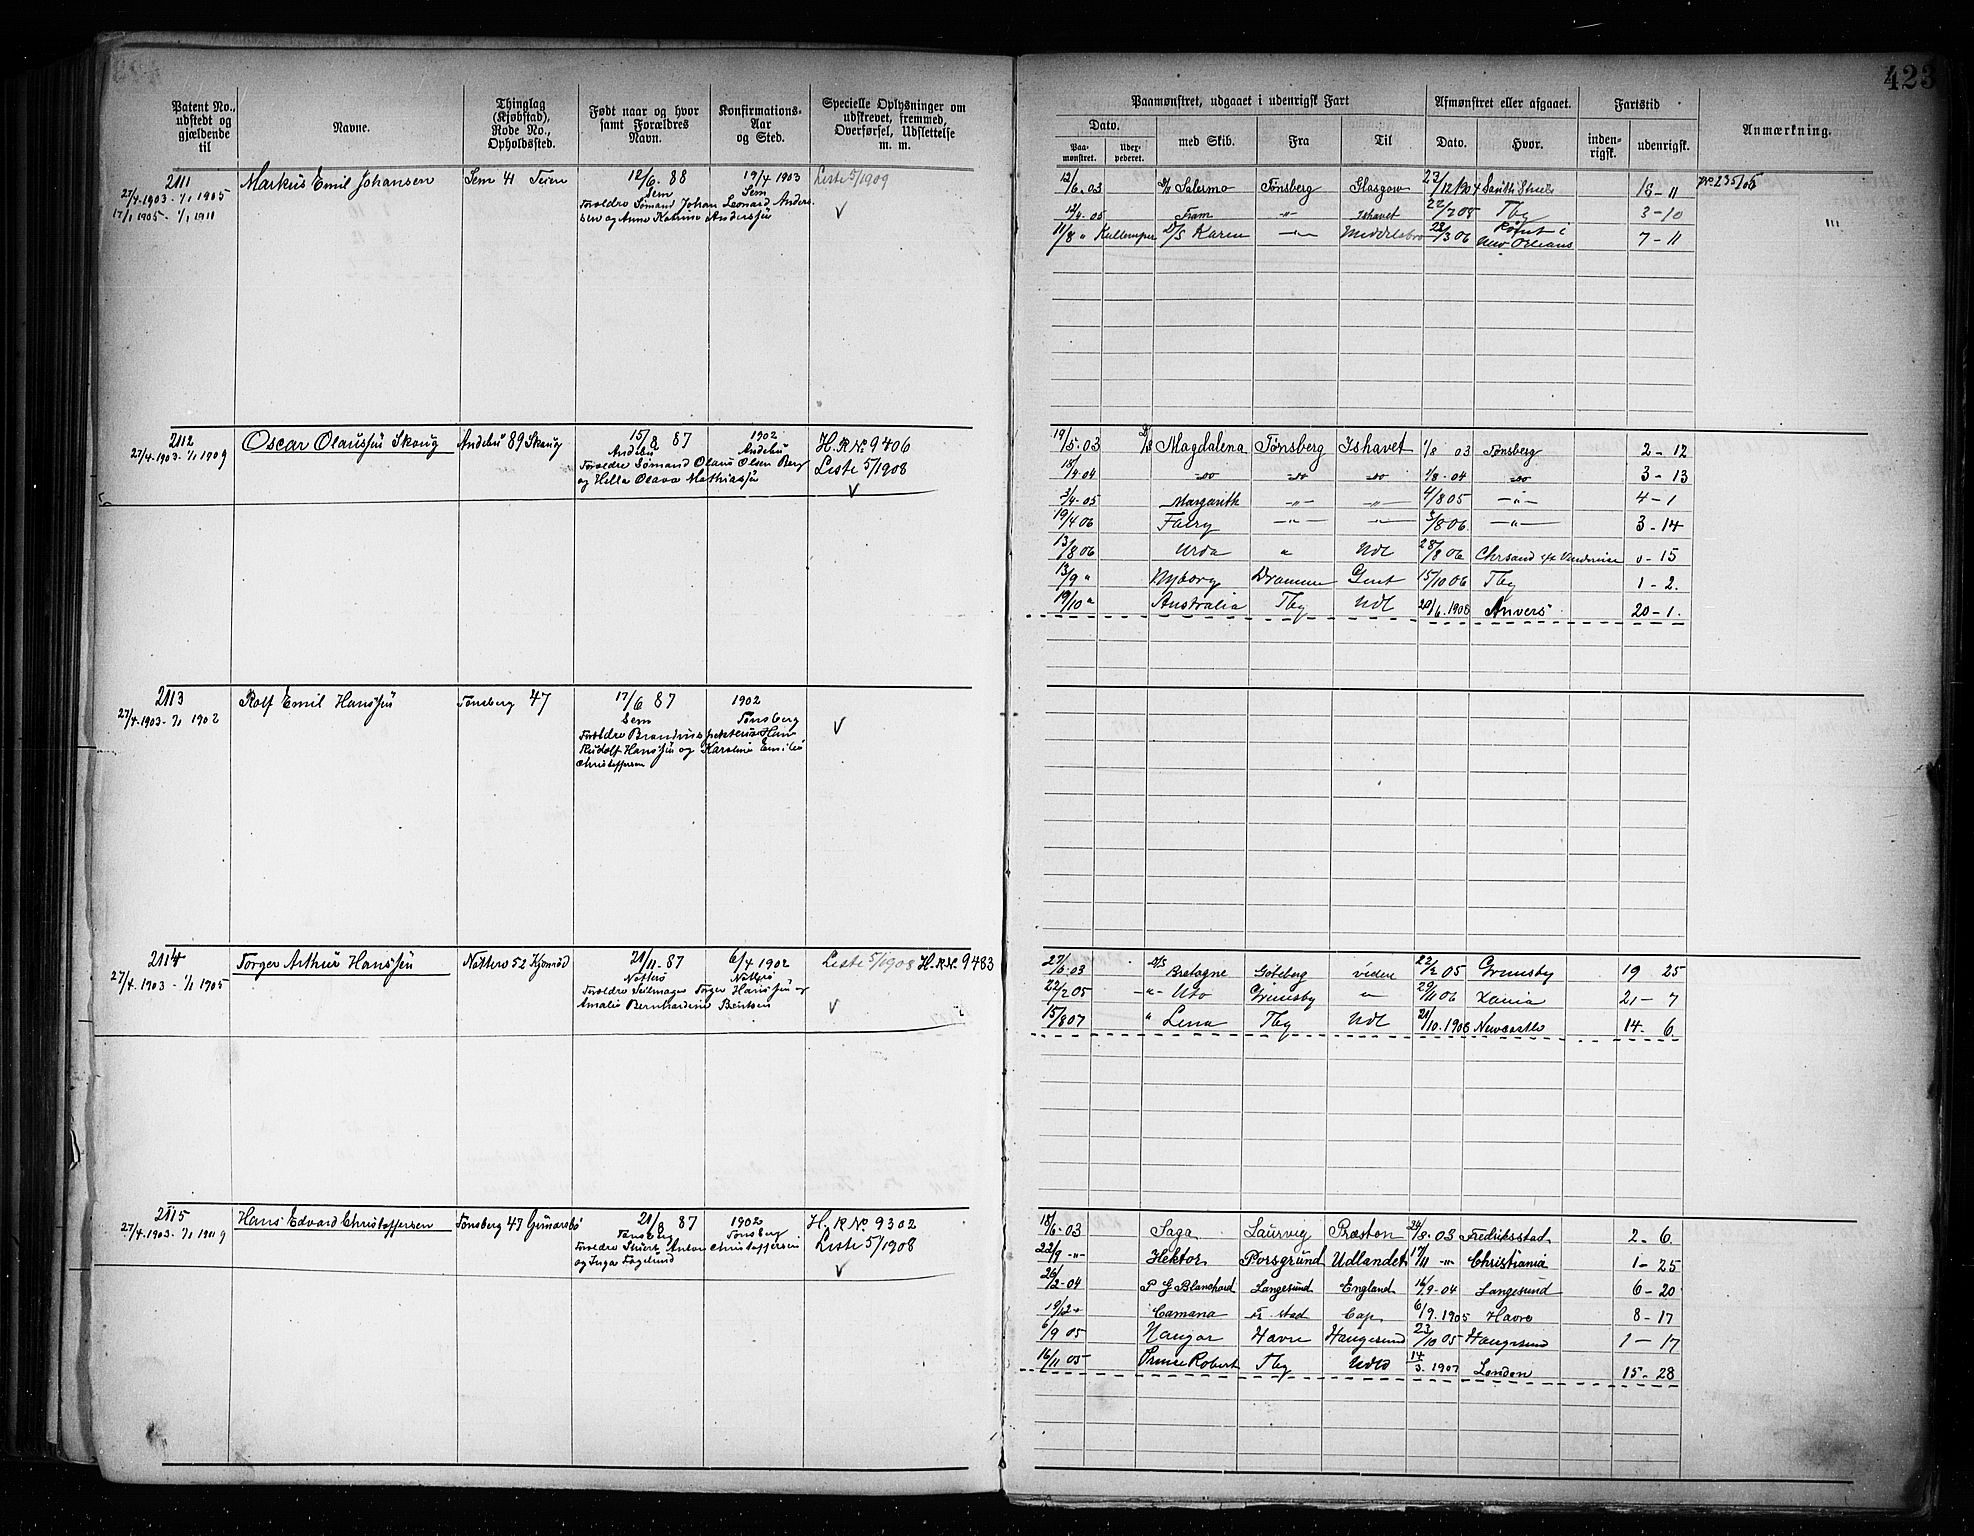 423
Patent No., udstedt og gjældende til
Navne.
Thinglag (Kjøbstad), Rode No., Opholdssted.
Født naar og hvor samt Forældres Navn.
Konfirmations-Aar og Sted.
Specielle Oplysninger om udskrevet, fremmed, Overførsel, Udslettelse m. m.
Paamønstret, udgaaet i udenrigsk Fart
Afmønstret eller afgaaet.
Fartstid
Anmærkning.
Dato.
Paa-mønstret.
Uder-pederet.
med Skib.
Fra
Til
Dato.
Hvor.
inden-rigsk.
udenrigsk.
2111
27/4.1903 - 1/1 1905
17/1 1905 - 1/1 1911
Markus Emil Johansen
Sem 41 Teien
12/6. 88
Sem
Forældre Sømand Johan Leonard Anders-
sen og Anna Katrine Anderssen
19/4 1903
Sem
Liste 5/1909
12/6.03 D/S Salermo Tønsberg Glasgow 23/12 1904 South Shiels 18-11
12/4.05 Fram -"- Ishavet 22/7 05 Tbg 3-10
11/8 " D/S Karen -"- Middelsbro 28/3 06 Rømt i New Orleans 7-11
2112
27/4.1903 - 1/1 1909
Oscar Olaussen Skoug
Andebu 89 Skoug
15/8 87
Andebu
Forældre Sømand Olaus Olsen Berg
og Hella Olava Mathiassen
1902
Andebu
H.R.No. 9406
Liste 5/1908
19/5.03 D/S Magdalena Tønsberg Ishavet 1/8 03 Tønsberg 2-12
18/4.04 -do- -do- -do- 1/8.04 -do- 3-13
3/4.05 Margareth -"- -"- 4/8 05 -"- 4-1
19/4 06 Fairy -"- -"- 3/8 06. -"- 3-14
13/8 06 Urda " Udl 28/8 06 Chrsand 0-15
13/9 " Nyborg Drammen Gent 15/10 06 Tbg 1-2.
19/10 " Australia Tbg Udl 20/6.1908 Anvers 20-1.
2113
27/4.1903 - 1/1 1902
Rolf Emil Hanssen
Tønsberg 47
17/6 87
Sem
Forældre Brandinspekteur Hans
Rudolf Hanssen og Karoline Emilie
Christoffersen
1902
Tønsberg
2114
27/4.1903 - 1/1 1905
Torger Arthur Hanssen
Nøtterø 52
21/11.87
Nøtterø
Forældre Seilmager Torger Hanssen og
Amalie Bernhardine Berntsen
6/4 1902
Nøtterø
Liste 5/1908 H.R.No. 9483
27/6.03 D/S Bretagne Göteborg videre 22/2 05 Grimsby 19 25
22/2 05 -"- Uto Grimsby " 29/11 06 Xania 21-7
15/8 07 " Lena Tbg Udl 21/10.1908 Newcastle 14-6.
2115
27/4.1903 - 1/1 1909
Hans Edvard Christoffersen
Tønsberg 47 Gunarsbø
21/8 87
Tønsberg
Forældre Stuert Anton Christoffersen
og Inga Fogelund
1902
Tønsberg
H.R.No. 9302
Liste 5/1908
18/6.03 Saga Laurvig Præston 24/8.03 Fredriksstad 2-6.
22/9 -"- Hektor Porsgrund Udlandet 17/11 -"- Christiania 1-25
26/2.04 P G Blanchard Langesund England 16/9.04 Langesund 6-20
19/12 " Camana Fr.stad Cap. 6/9.1905 Havre 8-17
6/9 05 Havre Haugesund 23/10 05 Haugesund 1-17
16/11 05 Prince Robert Tbg Udld 14/3.1907 London 15-28